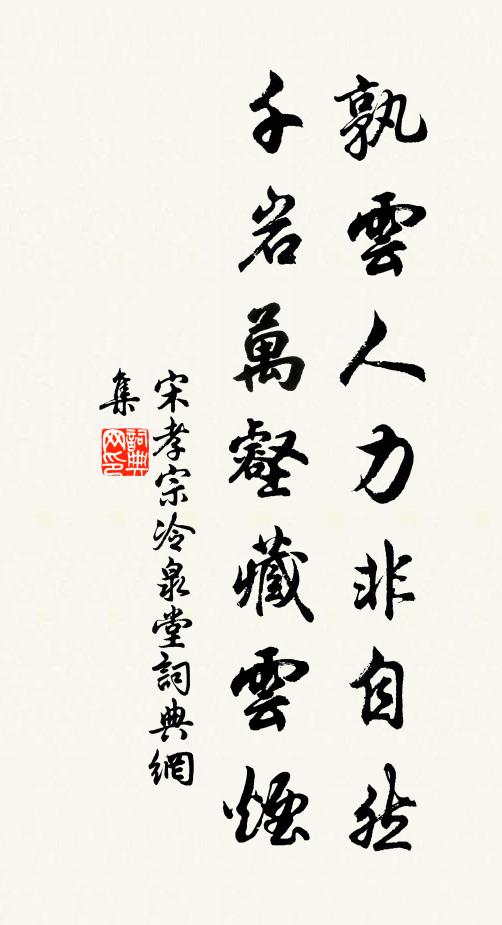 孰雲人力非自然
千岩萬壑藏雲煙
宋孝宗冷泉堂詞典網
集
詞典
网印